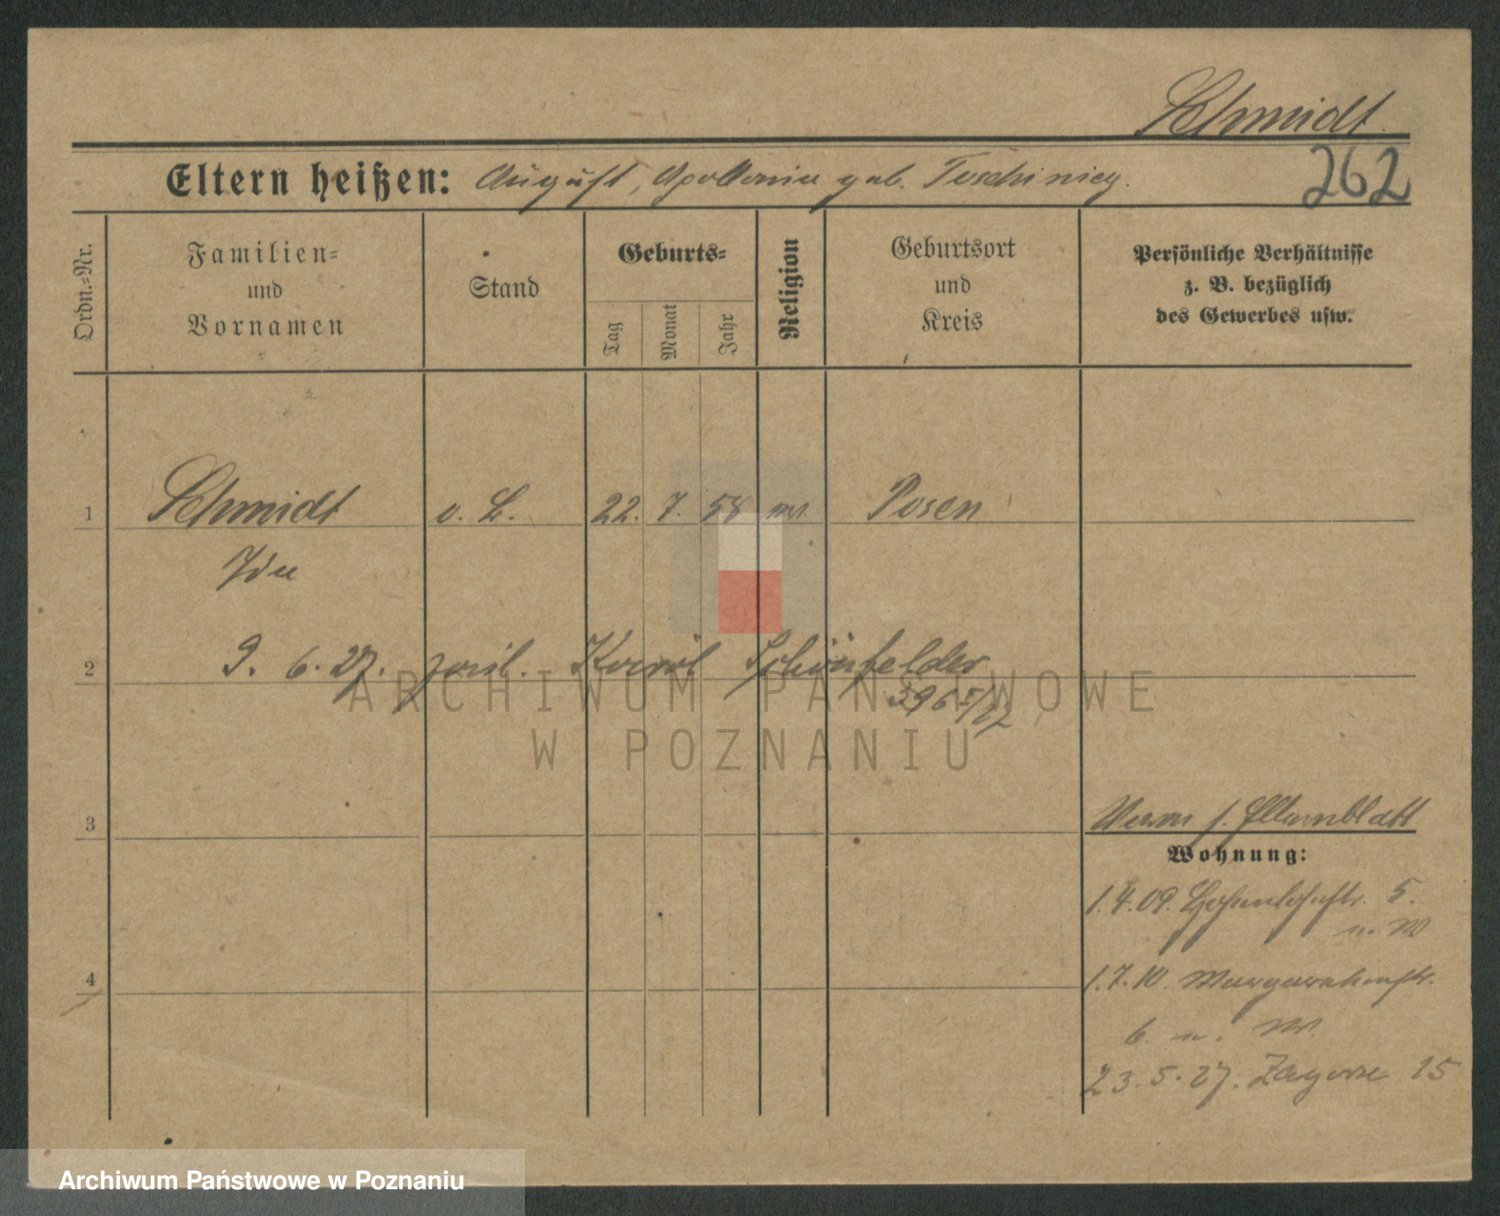 Schmidt
262
Eltern heißen: August, Apollonia geb.
Ordn.-Nr.
Familien-
und
Vornamen
Stand
Geburts-
Tag
Monat
Jahr
Religion
Geburtsort
und
Kreis
Persönliche Verhältnisse
z. B. bezüglich
des Gewerbes usw.
1 Schmidt o. L. 22. 7. 58 Posen
Ida
2 9. 6. 27. Schönfelder
396
3
Elternblatt
Wohnung:
1.4.09. 5.
u. M
4
1.7.10. Margarethenstr.
6 u. M.
23.5.27. Zagorze 15
ARCHIWUM PAŃSTWOWE
W POZNANIU
Archiwum Państwowe w Poznaniu